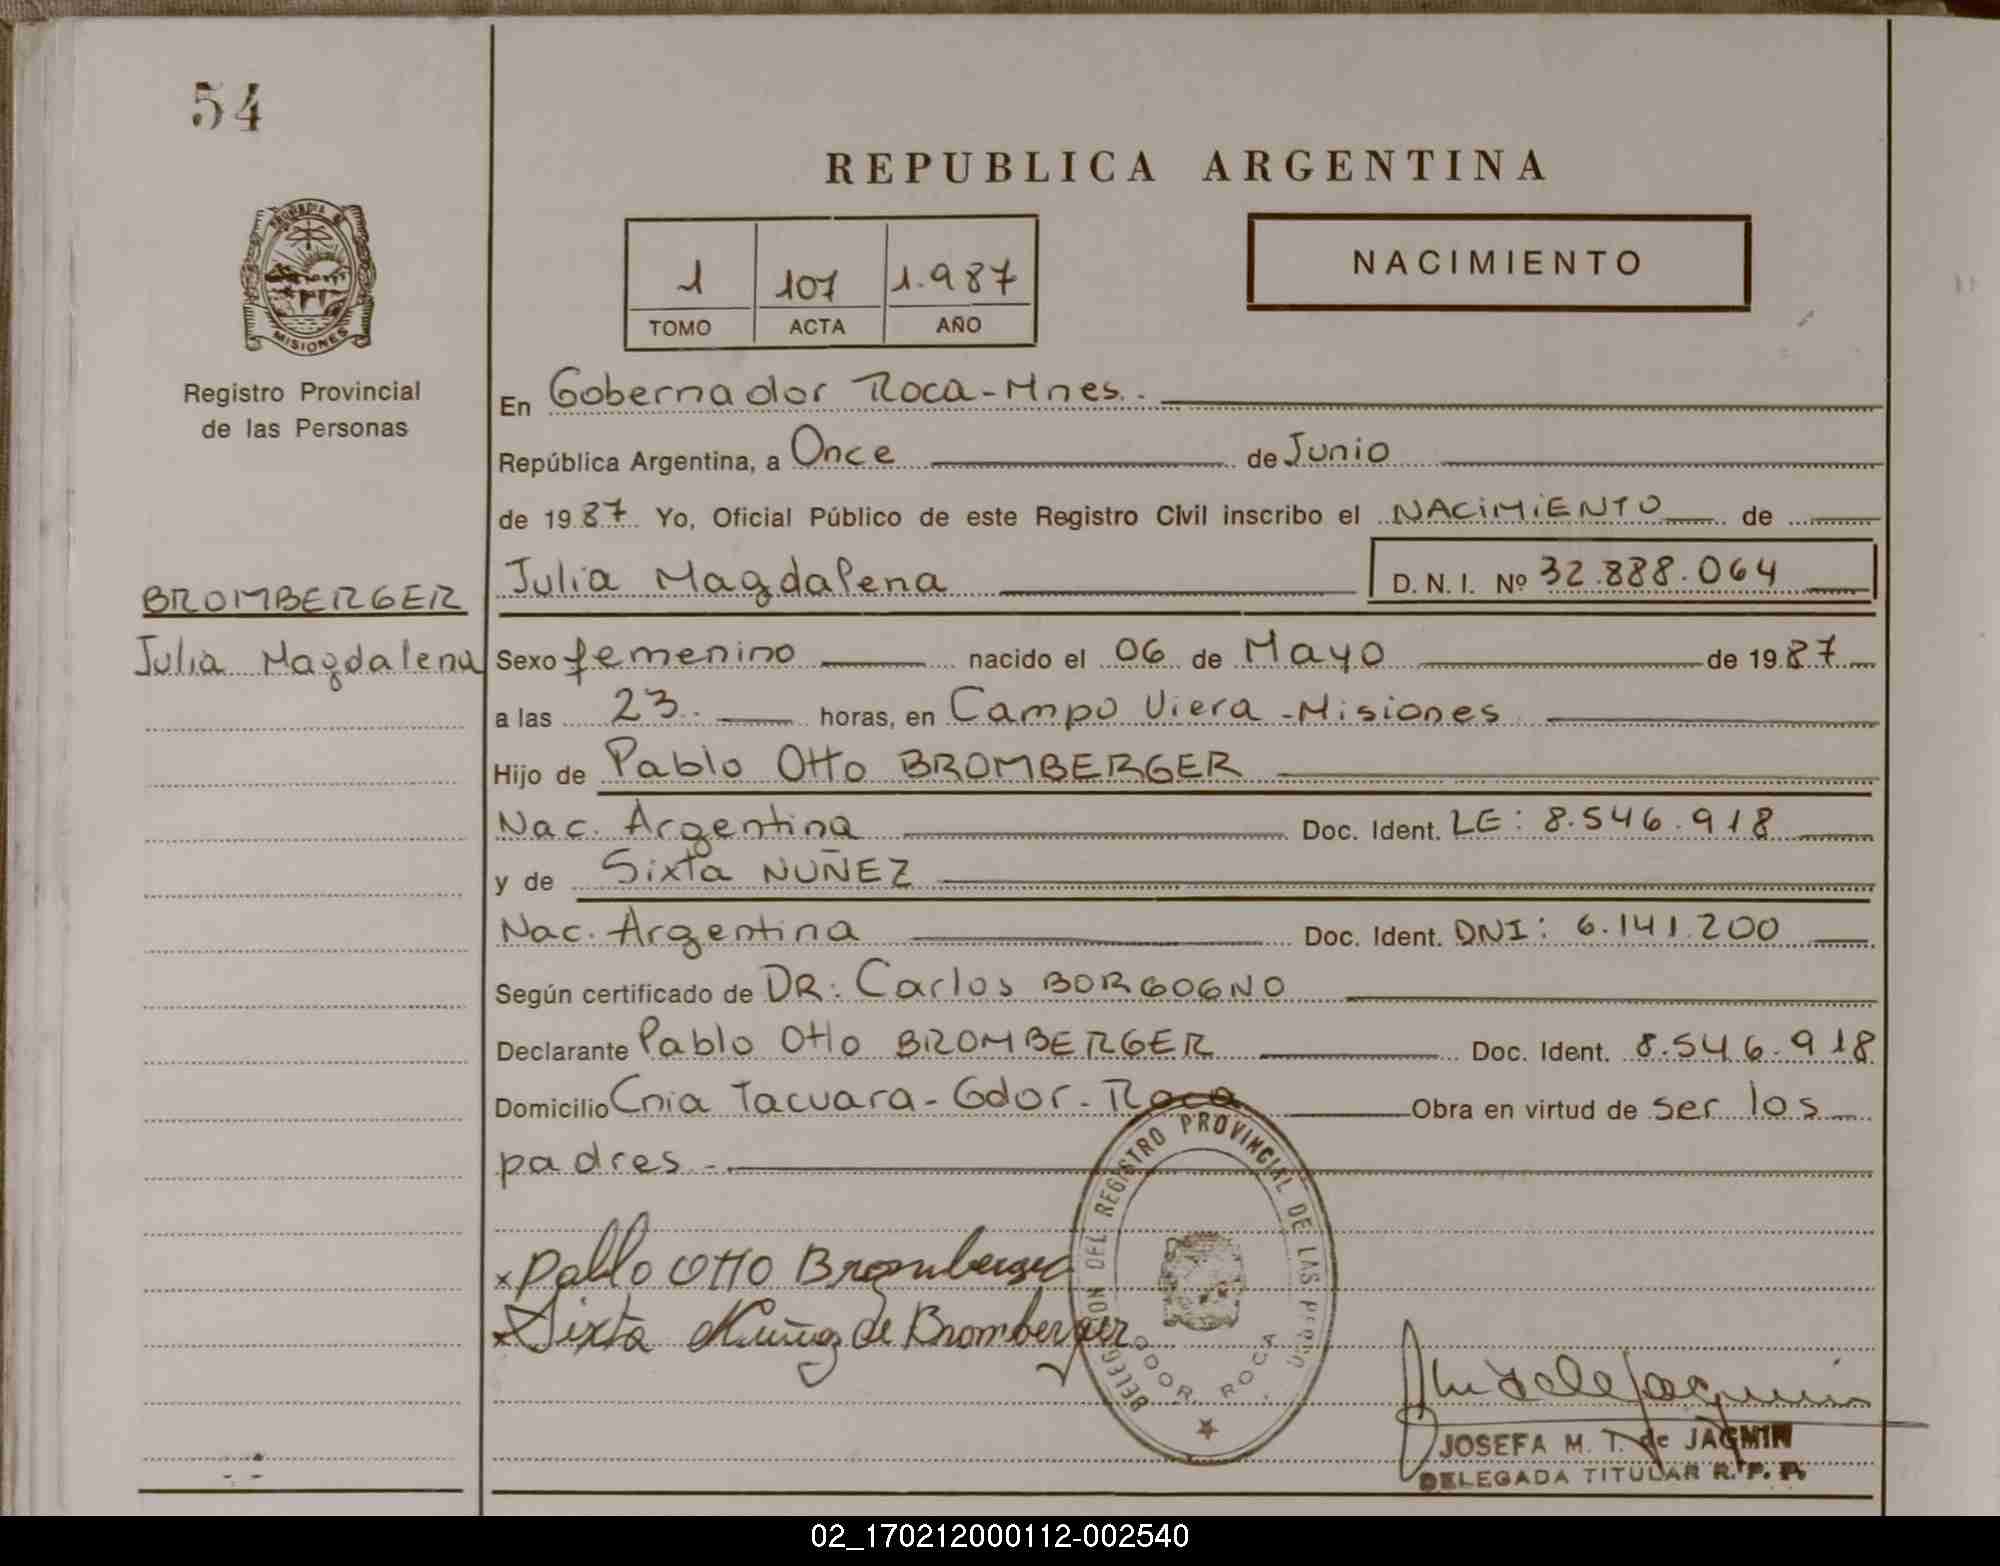 54
REPUBLICA ARGENTINA
1 107 1.987
TOMO ACTA AÑO
NACIMIENTO
MISIONES
Registro Provincial
de las Personas
En Gobernador Roca-Mnes.
República Argentina, a Once de Junio
de 1987 Yo, Oficial Público de este Registro Civil inscribo el NACIMIENTO de
BROMBERGER
Julia Magdalena
Julia Magdalena D. N. I. Nº 32.888.064
Sexo femenino nacido el 06 de Mayo de 1987
a las 23 horas, en Campo Viera - Misiones
Hijo de Pablo Otto BROMBERGER
Nac. Argentina Doc. Ident. LE: 8.546.918
y de Sixta NUÑEZ
Nac. Argentina Doc. Ident. DNI: 6.141.200
Según certificado de DR: Carlos BORGOGNO
Declarante Pablo Otto BROMBERGER Doc. Ident. 8.546.918
Domicilio Cnia Tacuara - Gdor. Roca Obra en virtud de ser los
padres -
x Pablo Otto Bromberger
x Sixta Nuñez de Bromberger
DELEGACION DEL REGISTRO PROVINCIAL DE LAS
GDOR. ROCA
JOSEFA M. T. de JAGMIN
DELEGADA TITULAR R. P. P.
02_170212000112-002540